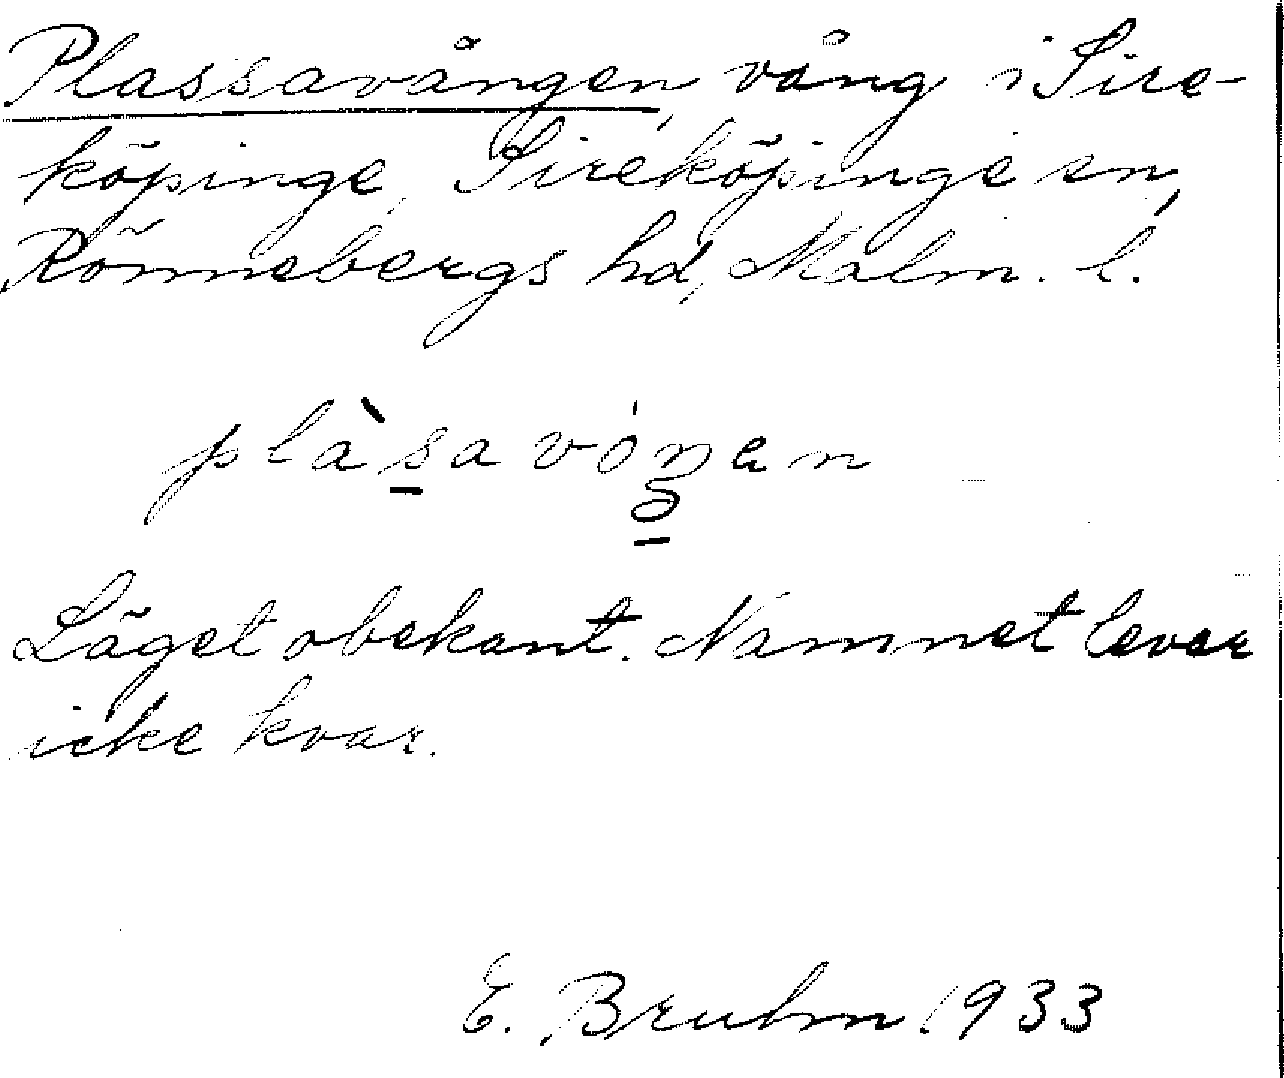 Plassavången, vång i Sire-
köpinge, Sireköpinge sn,
Rönnebergs hd, Malm. l.
plàs̠avóŋ̠en
Läget obekant. Namnet lever
icke kvar.
E. Bruhn 1933